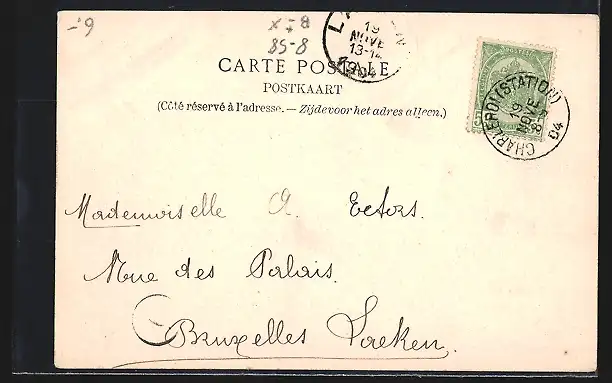 6,-
X-8
85-8
L
19
NOVE
13-14
1904
CARTE POSTALE
POSTKAART
(Côté réservé à l'adresse. — Zijde voor het adres alleen.)
CHARLEROI (STATION)
19
NOVE
8-
04
Mademoiselle A. Ectors.
Rue des Palais.
Bruxelles Laeken.